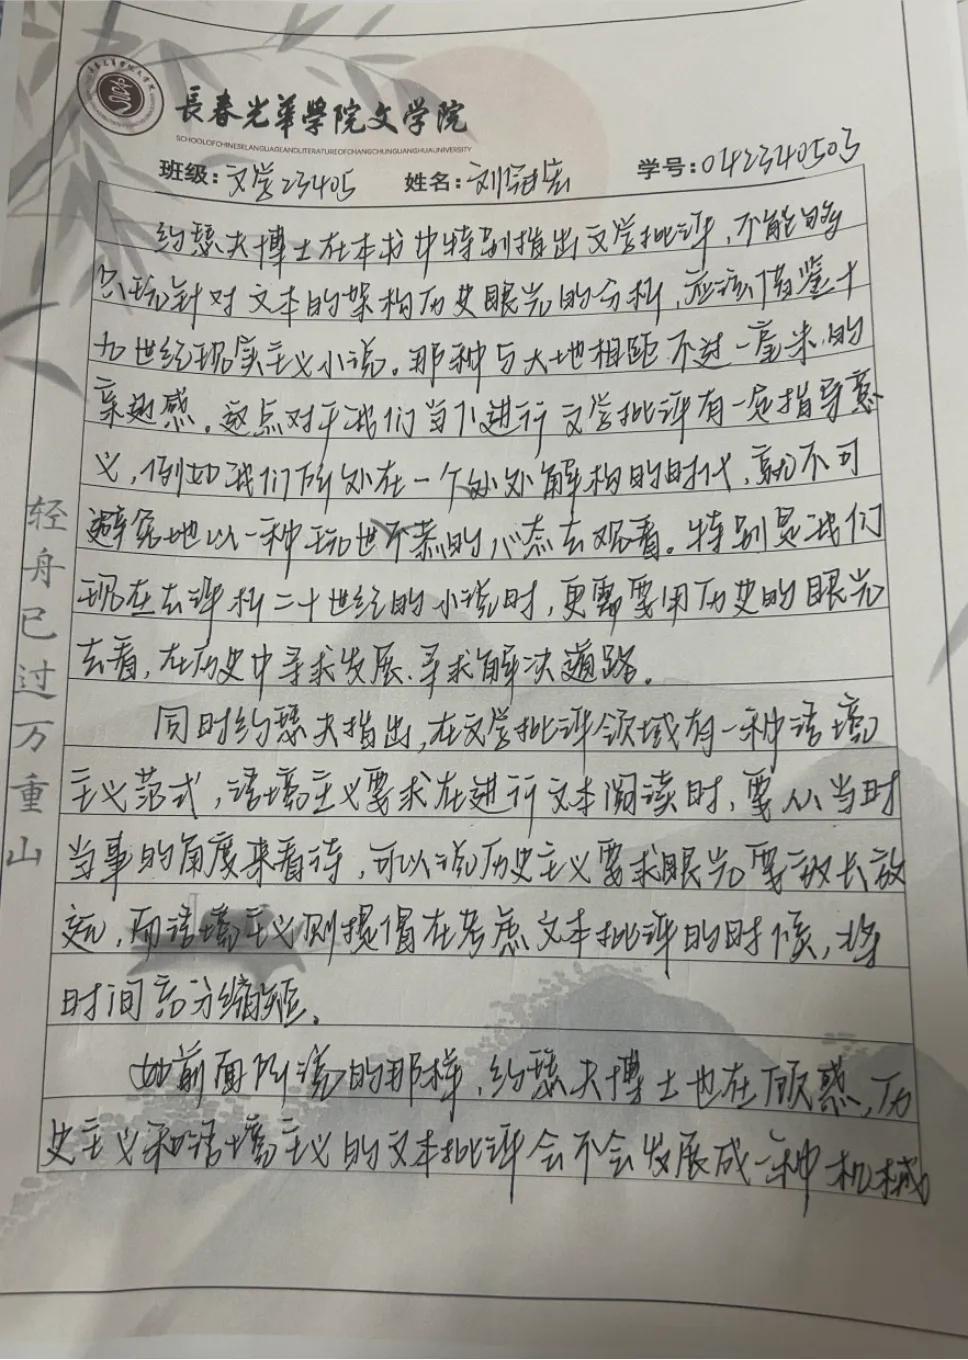 長春光華學院文学院
SCHOOLOFCHINESELANGUAGEANDLITERATUREOFCHANGCHUNGUANGHUAUNIVERSITY
班级:文学23405 姓名:刘冠宏 学号:042340503
约瑟夫博士在本书中特别指出文学批评，不能的
只玩针对文本的架构历史眼光的分析，应该借鉴十
九世纪现实主义小说。那种与大地相距不过一毫米的
亲近感。这点对于我们当下进行文学批评有一定指导意
义，例如我们所处在一个处处解构的时代，就不可
避免地以一种玩世不恭的心态去观看。特别是我们
现在去评析二十世纪的小说时，更需要用历史的眼光
去看，在历史中寻求发展、寻求解决道路。
同时约瑟夫指出，在文学批评领域有一种语境
主义范式，语境主义要求在进行文本阅读时，要从当时
当事的角度来看待，可以说历史主义要求眼光要放长放
远，而语境主义则提倡在考虑文本批评的时候，将
时间充分缩短。
如前面所说的那样，约瑟夫博士也在顾惑，历
史主义和语境主义的文本批评会不会发展成一种机械
轻舟已过万重山